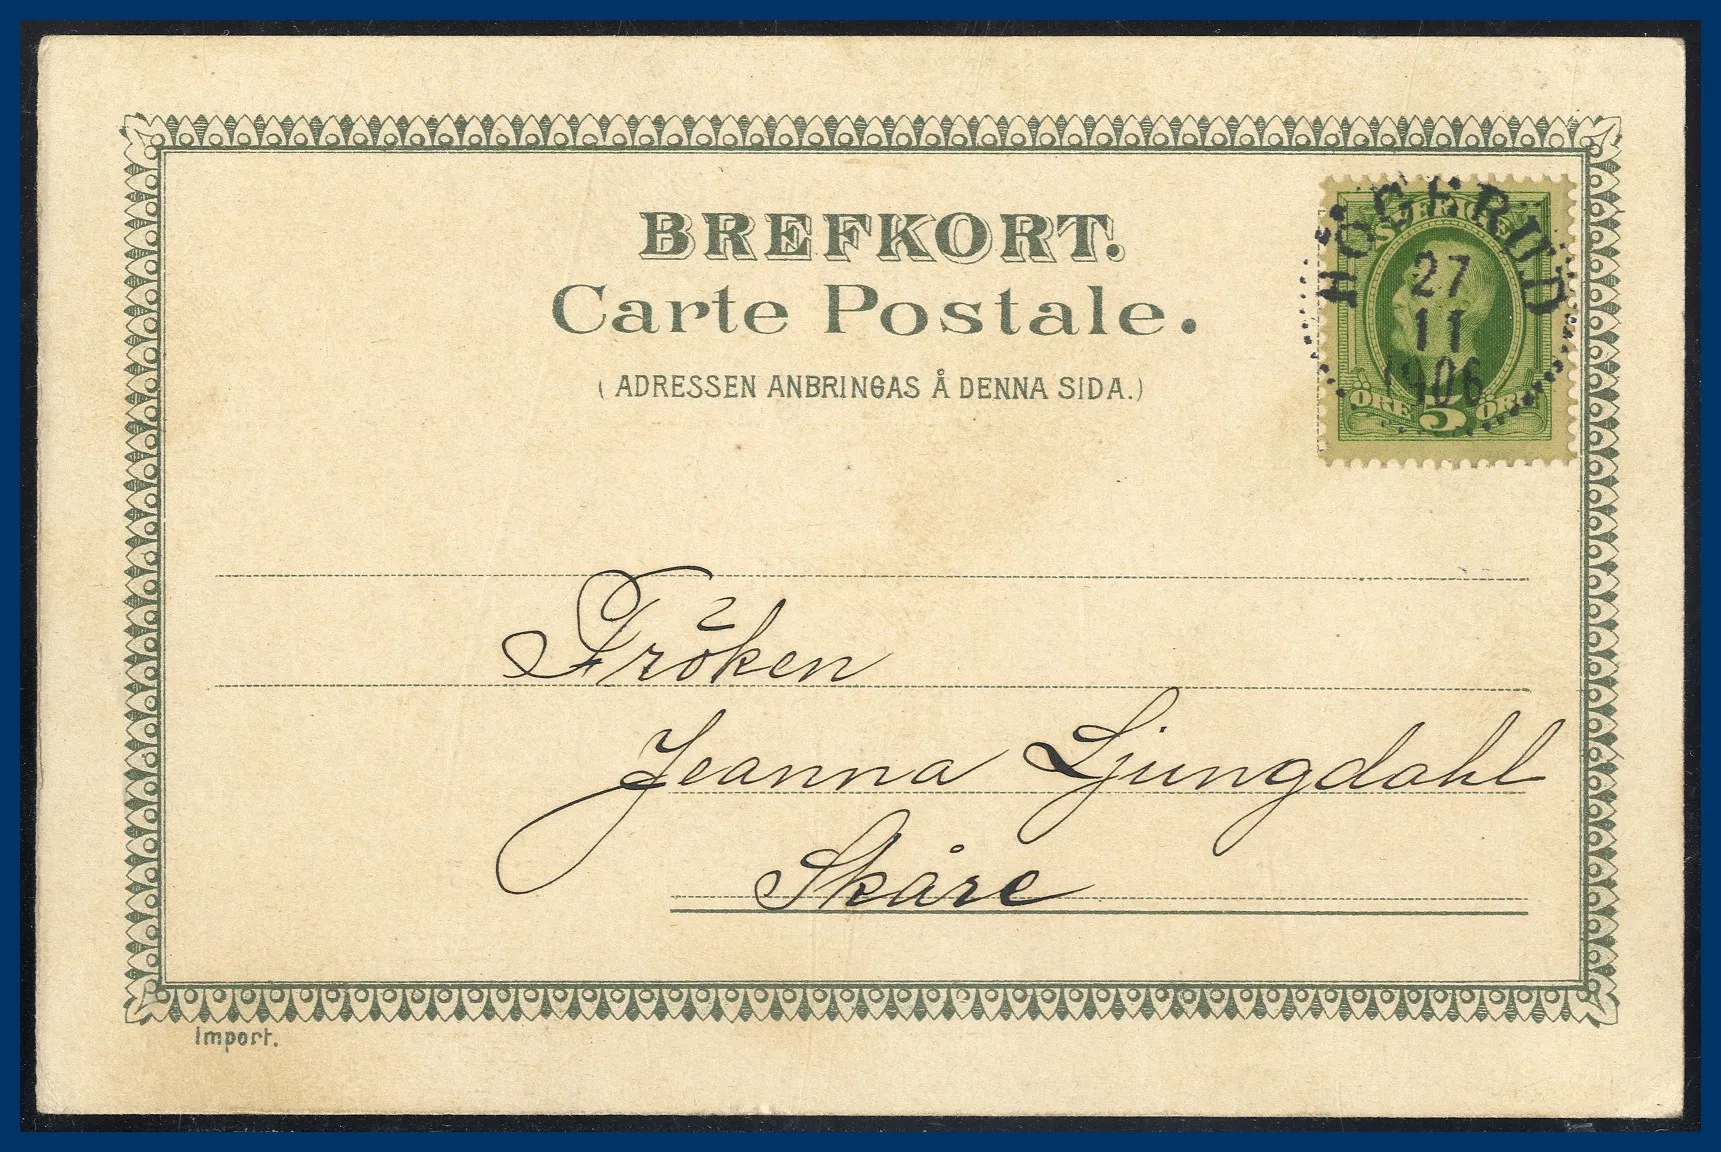 BREFKORT.
Carte Postale.
(ADRESSEN ANBRINGAS Å DENNA SIDA.)
HÖGERUD
27
11
1906
SVERIGE
ÖRE 5 ÖRE
Fröken
Jeanna Ljungdahl
Skåre
Import.